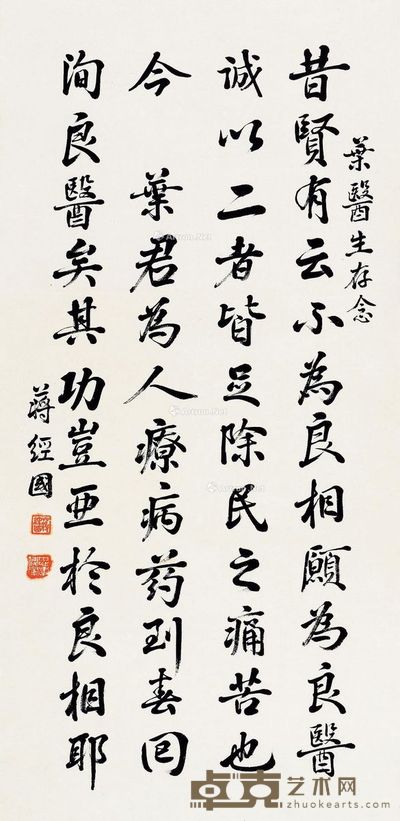 葉醫生存念
昔賢有云不為良相願為良醫
誠以二者皆足除民之痛苦也
今 葉君為人療病药到春回
洵良醫矣其功豈亞於良相耶
蔣經國
卓克艺术网
zhuokearts.com